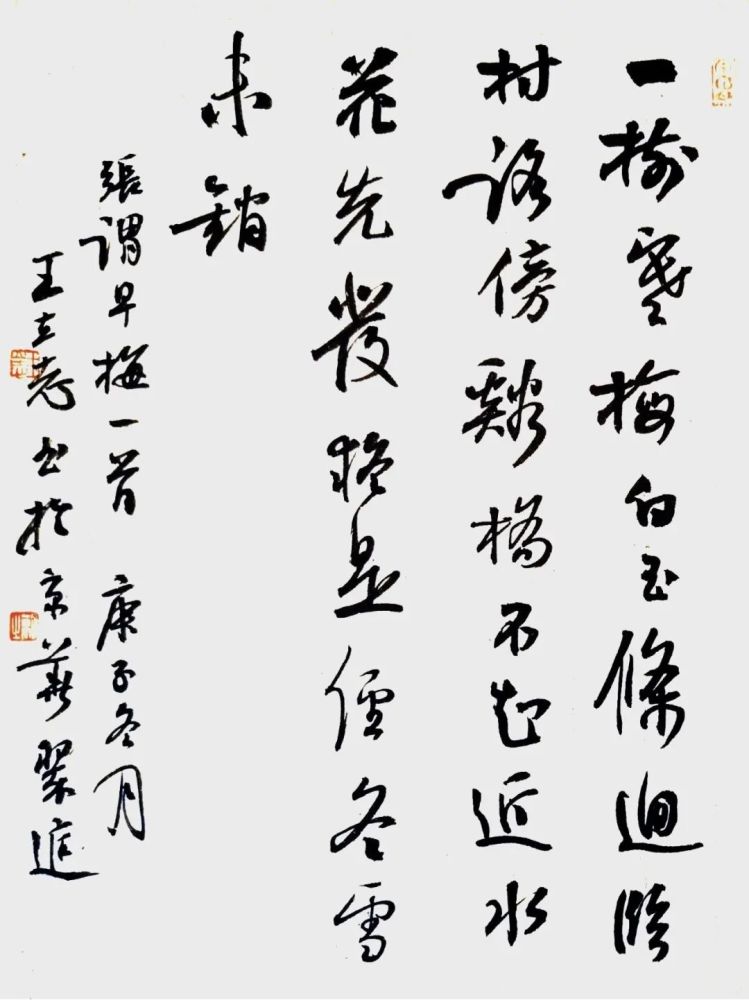 一樹寒梅白玉條迥臨
村路傍谿橋不知近水
花先發疑是經冬雪
未銷
張謂早梅一首 庚子冬月
王立志書於京華翠